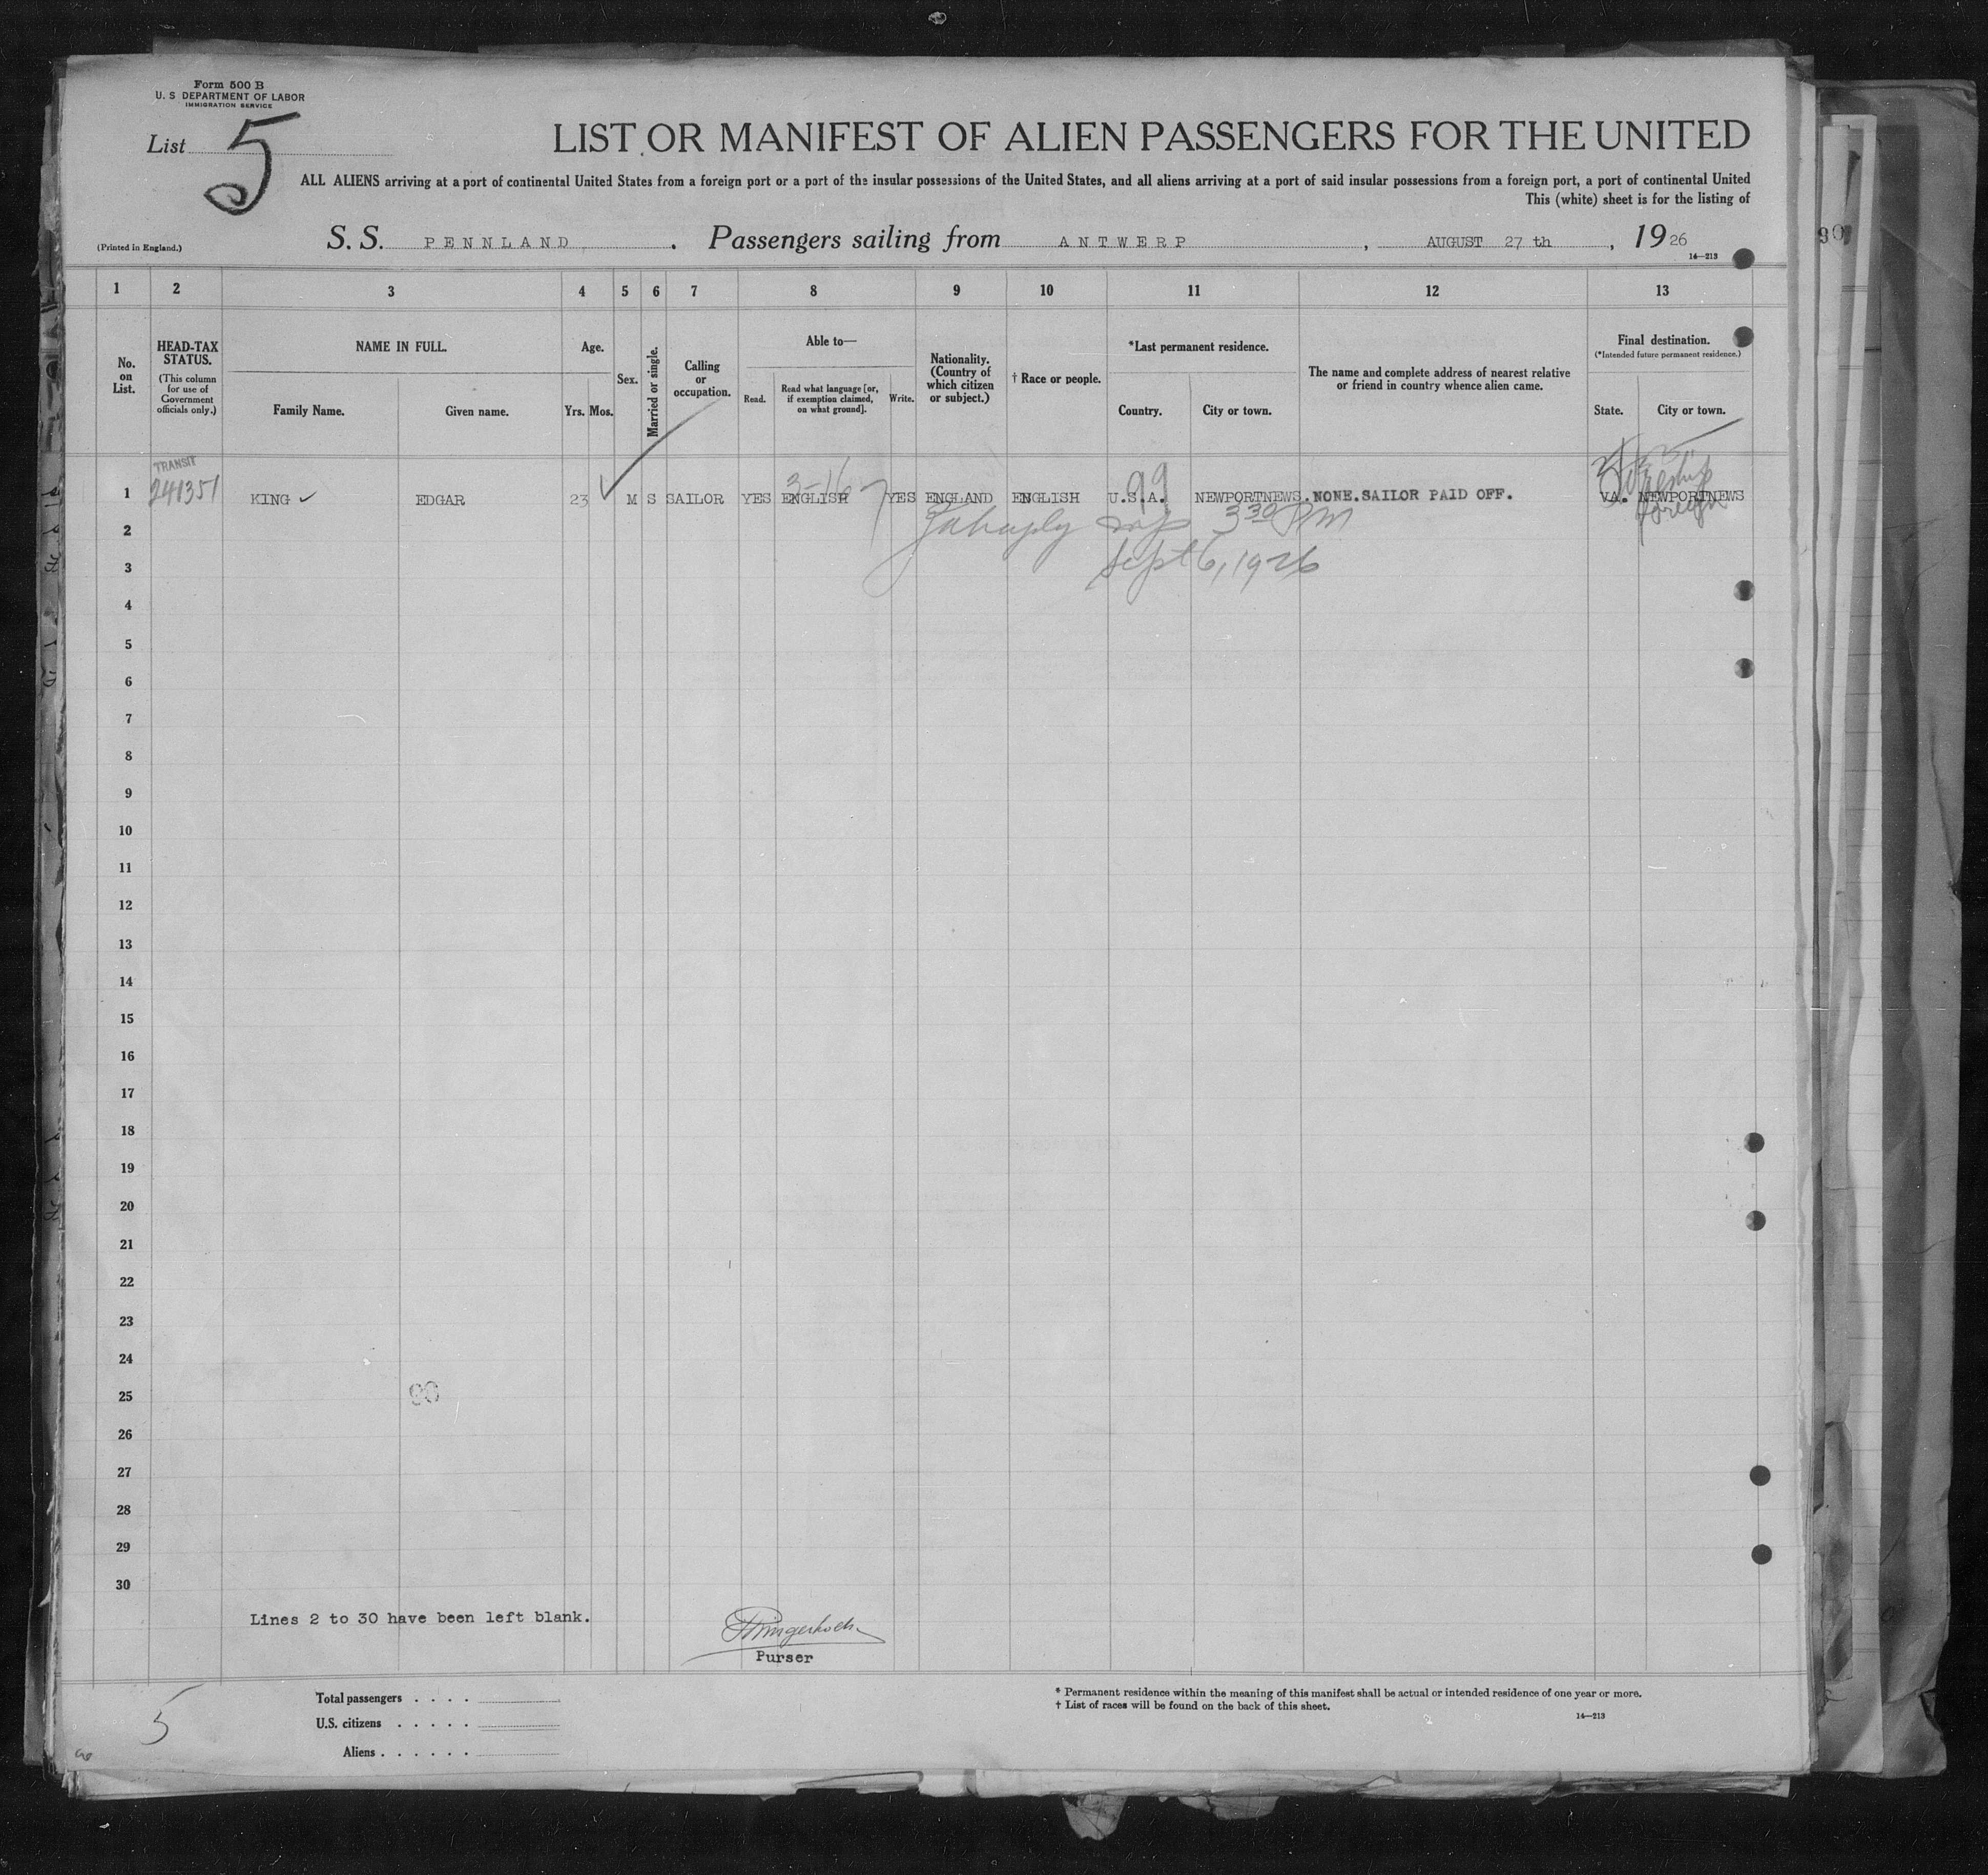 Form 500 B
U. S DEPARTMENT OF LABOR
IMMIGRATION SERVICE
List 5
LIST OR MANIFEST OF ALIEN PASSENGERS FOR THE UNITED
ALL ALIENS arriving at a port of continental United States from a foreign port or a port of the insular possessions of the United States, and all aliens arriving at a port of said insular possessions from a foreign port, a port of continental United
This (white) sheet is for the listing of
(Printed in England.)
S. S. PENNLAND. Passengers sailing from ANTWERP, AUGUST 27 th, 19 26
14—213
90
1 2 3 4 5 6 7 8 9 10 11 12 13
No. on List.
HEAD-TAX STATUS.
(This column for use of Government officials only.)
NAME IN FULL.
Family Name. Given name.
Age.
Yrs. Mos.
Sex.
Married or single.
Calling or occupation.
Able to—
Read. Read what language [or, if exemption claimed, on what ground]. Write.
Nationality. (Country of which citizen or subject.)
† Race or people.
*Last permanent residence.
Country. City or town.
The name and complete address of nearest relative or friend in country whence alien came.
Final destination.
(*Intended future permanent residence.)
State. City or town.
TRANSIT
241351
3-16
99
Foreign
1 KING ✓ EDGAR 23 M S SAILOR YES ENGLISH YES ENGLAND ENGLISH U.S.A. NEWPORTNEWS. NONE. SAILOR PAID OFF. VA. NEWPORTNEWS
3 30 PM
Sept 6, 1926
2
3
4
5
6
7
8
9
10
11
12
13
14
15
16
17
18
19
20
21
22
23
24
25
90
26
27
28
29
30
Lines 2 to 30 have been left blank.
Purser
5
Total passengers . . . .
U.S. citizens . . . . .
Aliens . . . . . .
* Permanent residence within the meaning of this manifest shall be actual or intended residence of one year or more.
† List of races will be found on the back of this sheet.
14—213